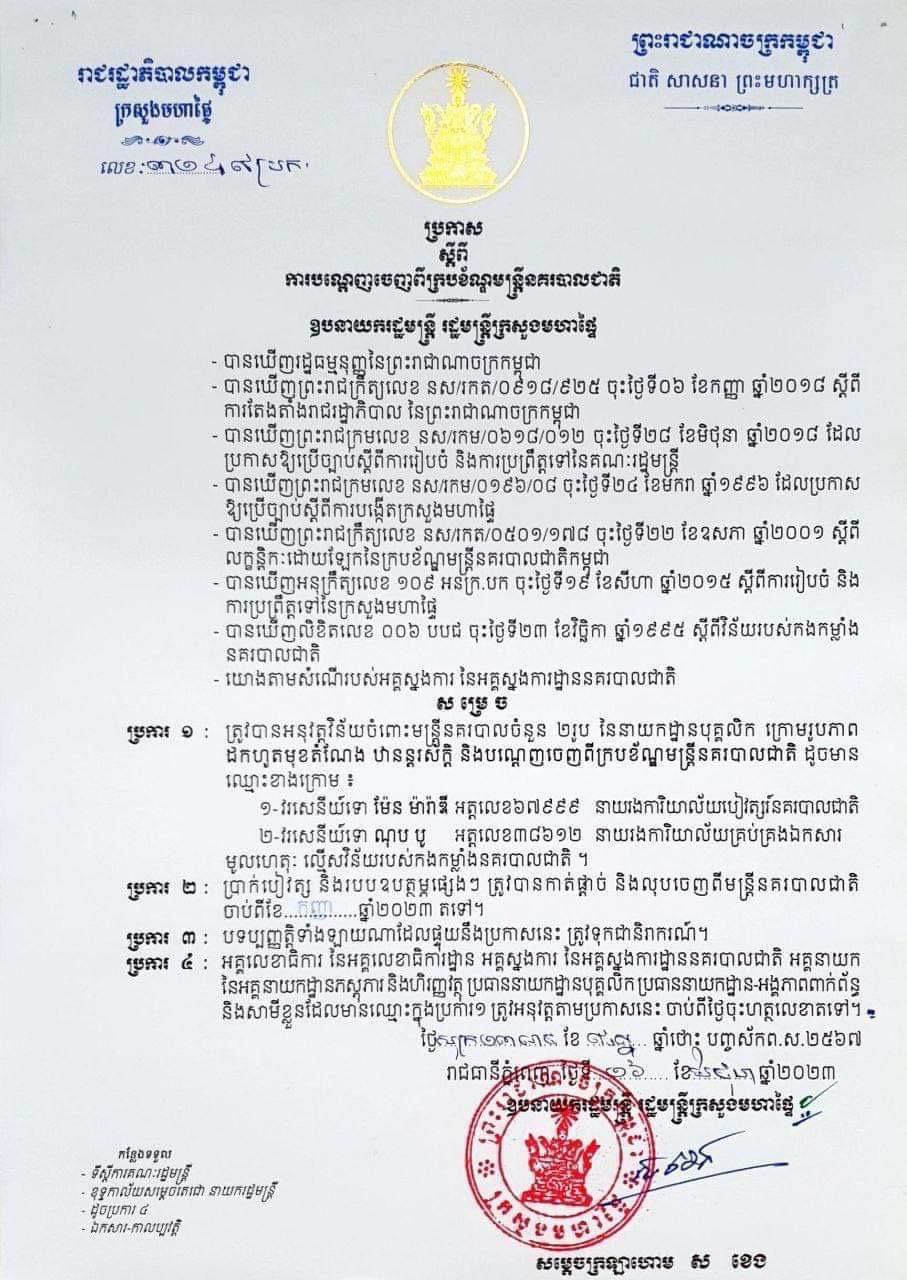 ព្រះរាជាណាចក្រកម្ពុជា
ជាតិ សាសនា ព្រះមហាក្សត្រ
រាជរដ្ឋាភិបាលកម្ពុជា
ក្រសួងមហាផ្ទៃ
លេខៈ ប្រក
ប្រកាស
ស្តីពី
ការបណ្តេញចេញពីក្របខ័ណ្ឌមន្ត្រីនគរបាលជាតិ
ឧបនាយករដ្ឋមន្ត្រី រដ្ឋមន្ត្រីក្រសួងមហាផ្ទៃ
- បានឃើញរដ្ឋធម្មនុញ្ញនៃព្រះរាជាណាចក្រកម្ពុជា
- បានឃើញព្រះរាជក្រឹត្យលេខ នស/រកត/០៩១៨/៩២៥ ចុះថ្ងៃទី០៦ ខែកញ្ញា ឆ្នាំ២០១៨ ស្តីពី
ការតែងតាំងរាជរដ្ឋាភិបាល នៃព្រះរាជាណាចក្រកម្ពុជា
- បានឃើញព្រះរាជក្រមលេខ នស/រកម/០៦១៨/០១២ ចុះថ្ងៃទី២៨ ខែមិថុនា ឆ្នាំ២០១៨ ដែល
ប្រកាសឱ្យប្រើច្បាប់ស្តីពីការរៀបចំ និងការប្រព្រឹត្តទៅនៃគណៈរដ្ឋមន្ត្រី
- បានឃើញព្រះរាជក្រមលេខ នស/រកម/០១៩៦/០៨ ចុះថ្ងៃទី២៤ ខែមករា ឆ្នាំ១៩៩៦ ដែលប្រកាស
ឱ្យប្រើច្បាប់ស្តីពីការបង្កើតក្រសួងមហាផ្ទៃ
- បានឃើញព្រះរាជក្រឹត្យលេខ នស/រកត/០៥០១/១៧៨ ចុះថ្ងៃទី២២ ខែឧសភា ឆ្នាំ២០០១ ស្តីពី
លក្ខន្តិកៈដោយឡែកនៃក្របខ័ណ្ឌមន្ត្រីនគរបាលជាតិកម្ពុជា
- បានឃើញអនុក្រឹត្យលេខ ១០៩ អនក្រ.បក ចុះថ្ងៃទី១៩ ខែសីហា ឆ្នាំ២០១៥ ស្តីពីការរៀបចំ និង
ការប្រព្រឹត្តទៅនៃក្រសួងមហាផ្ទៃ
- បានឃើញលិខិតលេខ ០០៦ បបជ ចុះថ្ងៃទី២៣ ខែវិច្ឆិកា ឆ្នាំ១៩៩៥ ស្តីពីវិន័យរបស់កងកម្លាំង
នគរបាលជាតិ
- យោងតាមសំណើរបស់អគ្គស្នងការ នៃអគ្គស្នងការដ្ឋាននគរបាលជាតិ
ស ម្រេ ច
ប្រការ ១ : ត្រូវបានអនុវត្តវិន័យចំពោះមន្ត្រីនគរបាលចំនួន ២រូប នៃនាយកដ្ឋានបុគ្គលិក ក្រោមរូបភាព
ដកហូតមុខតំណែង ឋានន្តរស័ក្តិ និងបណ្តេញចេញពីក្របខ័ណ្ឌមន្ត្រីនគរបាលជាតិ ដូចមាន
ឈ្មោះខាងក្រោម ៖
១-វរសេនីយ៍ទោ ម៉ែន ម៉ារ៉ាឌី អត្តលេខ៦៧៩៩៩ នាយរងការិយាល័យបៀវត្សរ៍នគរបាលជាតិ
២-វរសេនីយ៍ទោ ណុប បូ អត្តលេខ៣៨៦១២ នាយរងការិយាល័យគ្រប់គ្រងឯកសារ
មូលហេតុៈ ល្មើសវិន័យរបស់កងកម្លាំងនគរបាលជាតិ ។
ប្រការ ២ : ប្រាក់បៀវត្ស និងរបបឧបត្ថម្ភផ្សេងៗ ត្រូវបានកាត់ផ្តាច់ និងលុបចេញពីមន្ត្រីនគរបាលជាតិ
ចាប់ពីខែ...កញ្ញា...ឆ្នាំ២០២៣ តទៅ។
ប្រការ ៣ : បទប្បញ្ញត្តិទាំងឡាយណាដែលផ្ទុយនឹងប្រកាសនេះ ត្រូវទុកជានិរាករណ៍។
ប្រការ ៤ : អគ្គលេខាធិការ នៃអគ្គលេខាធិការដ្ឋាន អគ្គស្នងការ នៃអគ្គស្នងការដ្ឋាននគរបាលជាតិ អគ្គនាយក
នៃអគ្គនាយកដ្ឋានភស្តុភារ និងហិរញ្ញវត្ថុ ប្រធាននាយកដ្ឋានបុគ្គលិក ប្រធាននាយកដ្ឋាន-អង្គភាពពាក់ព័ន្ធ
និងសាមីខ្លួនដែលមានឈ្មោះក្នុងប្រការ១ ត្រូវអនុវត្តតាមប្រកាសនេះ ចាប់ពីថ្ងៃចុះហត្ថលេខាតទៅ។
ថ្ងៃ ខែ ឆ្នាំថោះ បញ្ចស័កព.ស.២៥៦៧
រាជធានីភ្នំពេញ ថ្ងៃទី...១៦... ខែ ឆ្នាំ២០២៣
ឧបនាយករដ្ឋមន្ត្រី រដ្ឋមន្ត្រីក្រសួងមហាផ្ទៃ
ព្រះរាជាណាចក្រកម្ពុជា
ក្រសួងមហាផ្ទៃ
កន្លែងទទួល
- ទីស្តីការគណៈរដ្ឋមន្ត្រី
- ខុទ្ទកាល័យសម្តេចតេជោ នាយករដ្ឋមន្ត្រី
- ដូចប្រការ ៤
- ឯកសារ-កាលប្បវត្តិ
សម្តេចក្រឡាហោម ស ខេង